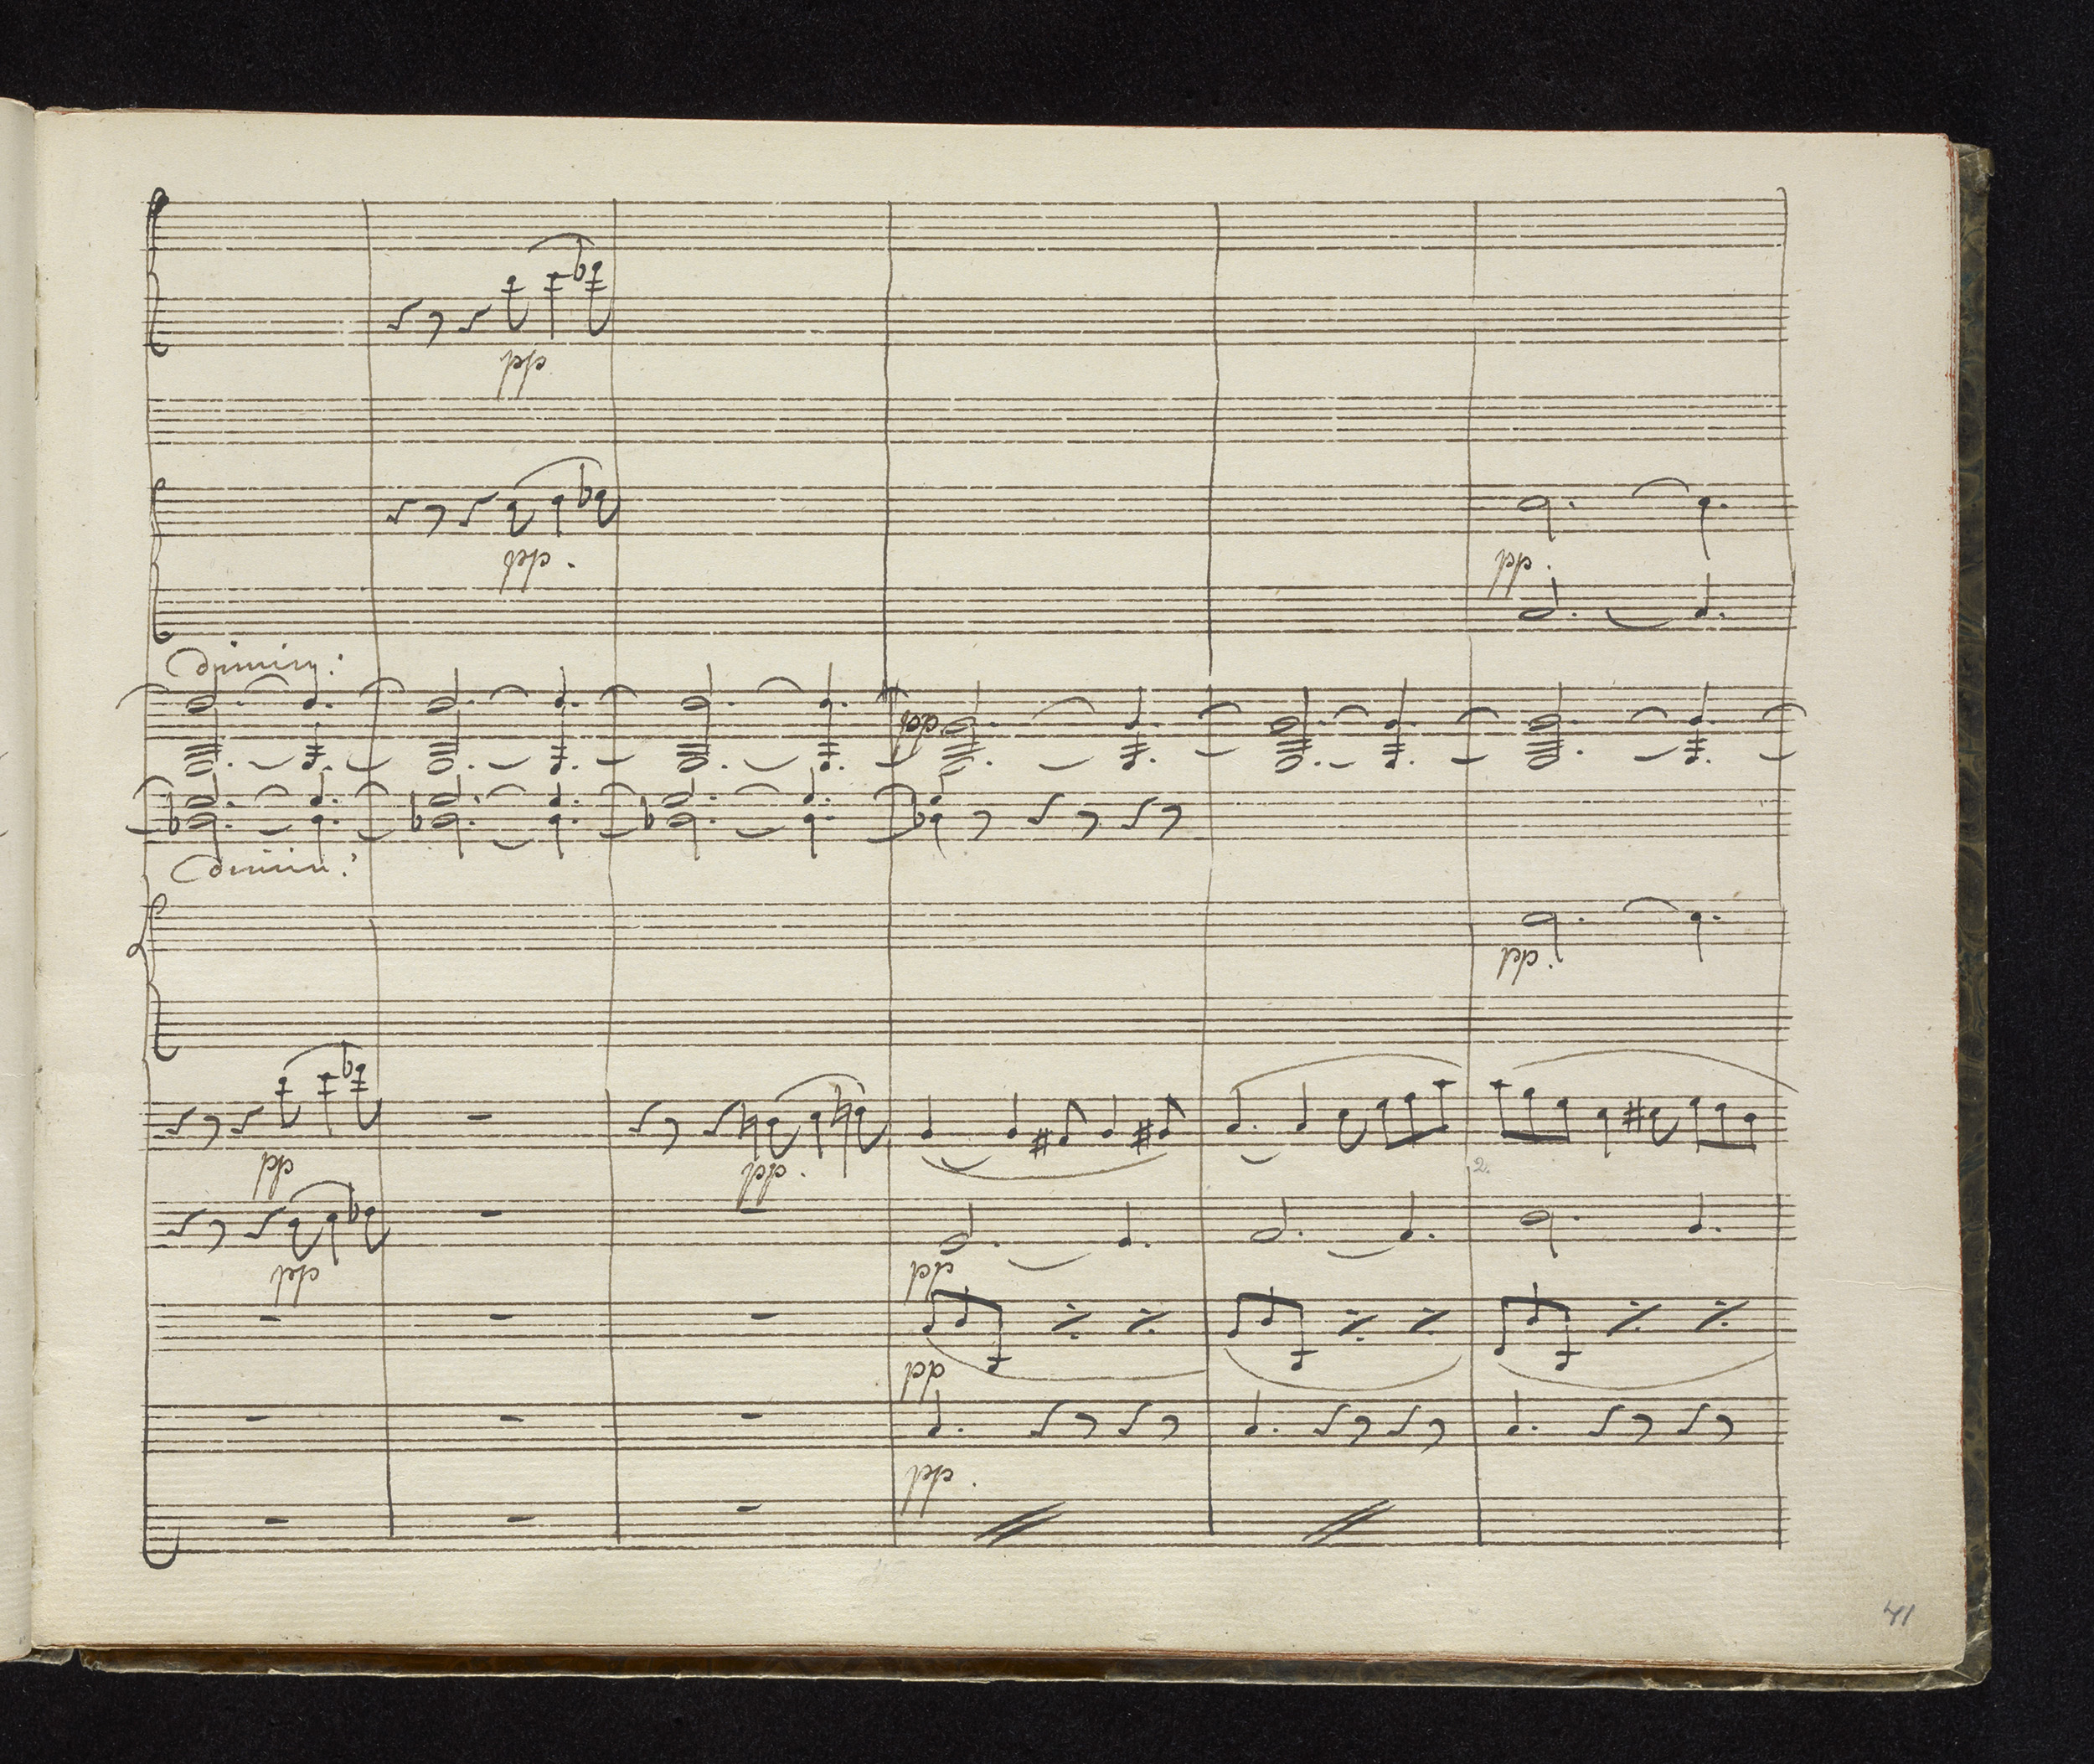 pp
pp.
pp.
dimin:
pp
dimin:
pp.
pp
pp.
2.
pp
pp
pp
pp.
41